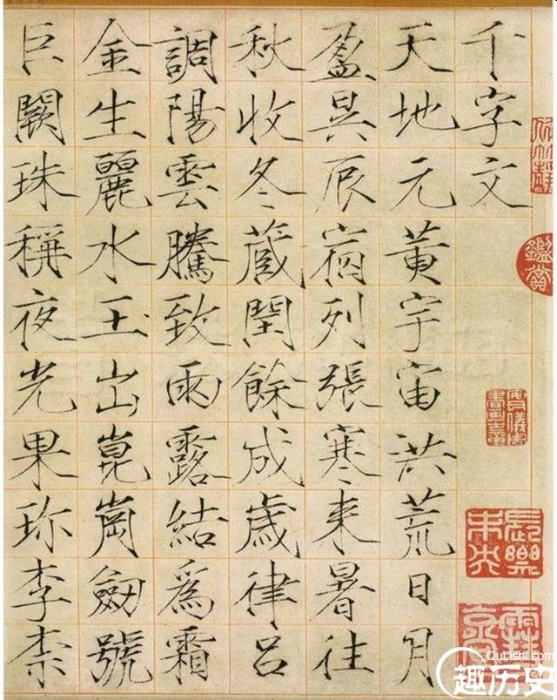 千字文
天地元黄宇宙洪荒日月
盈昃辰宿列張寒来暑往
秋收冬蔵閏餘成歳律呂
調陽雲騰致雨露結爲霜
金生麗水玉出崑崗劔號
巨闕珠稱夜光果珎李柰
鑑賞
Qulishi.com
趣历史